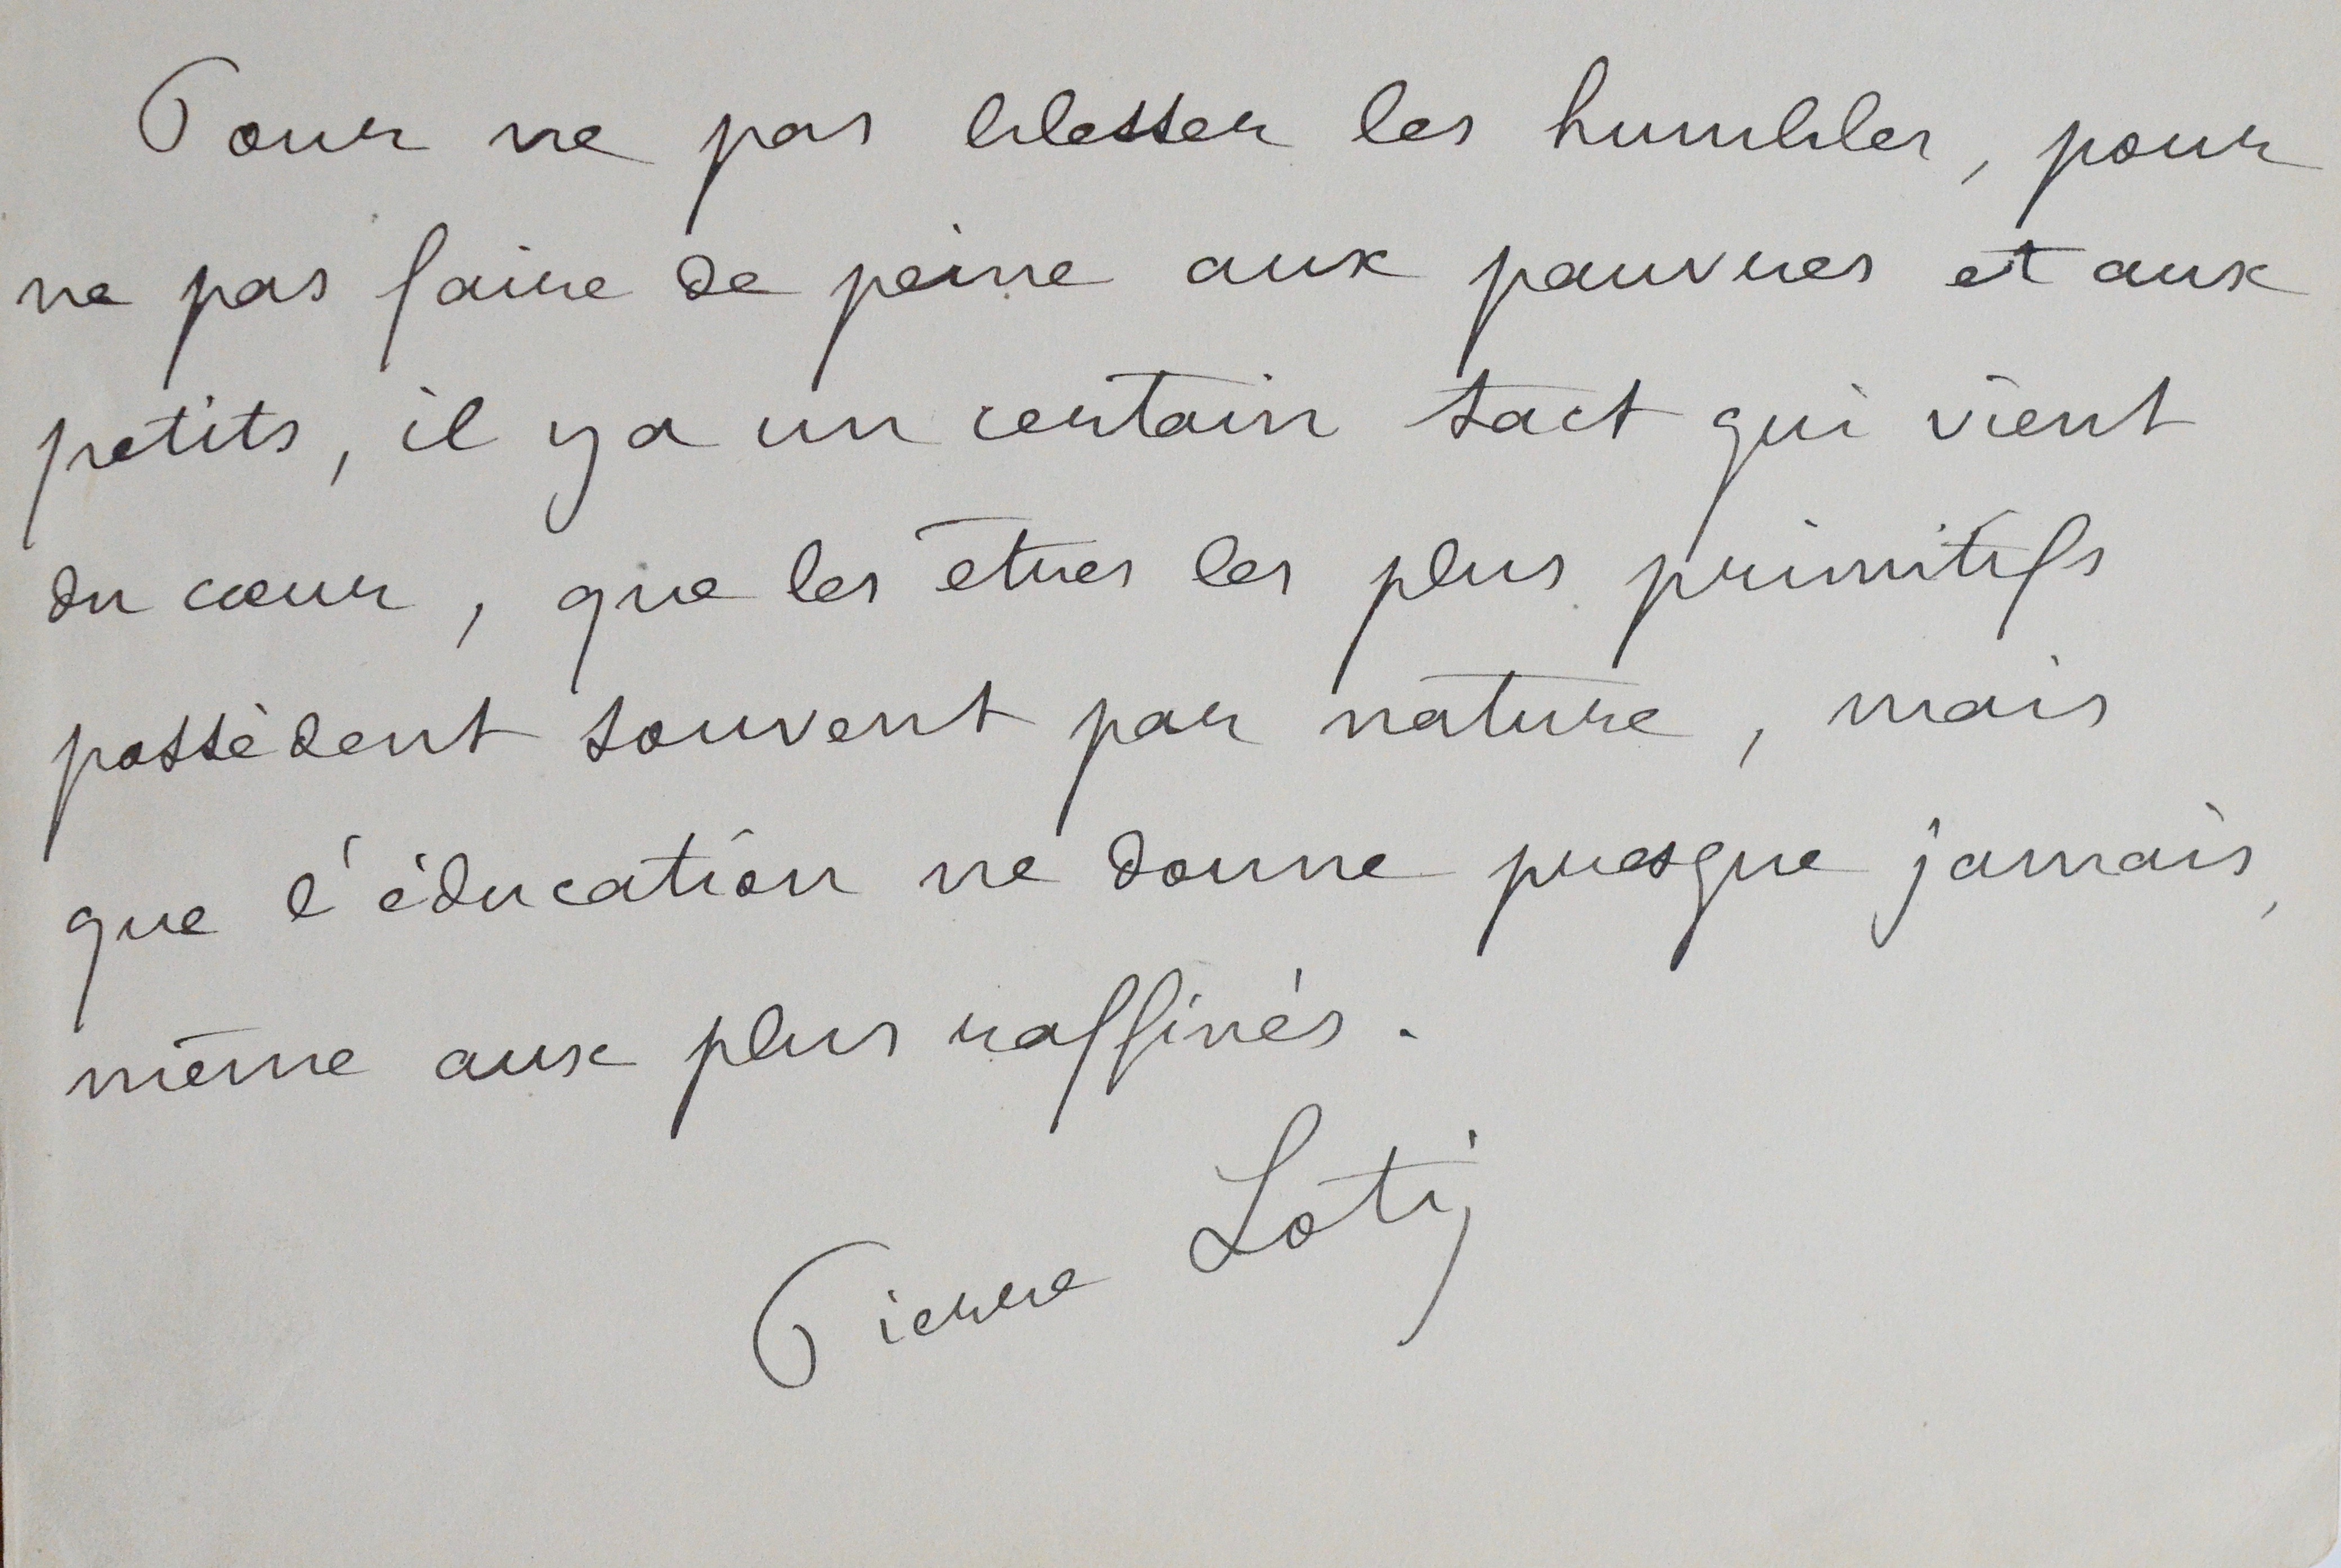 Pour ne pas blesser les humbles, pour
ne pas faire de peine aux pauvres et aux
petits, il y a un certain tact qui vient
du cœur, que les êtres les plus primitifs
possèdent souvent par nature, mais
que l'éducation ne donne presque jamais,
même aux plus raffinés.
Pierre Loti